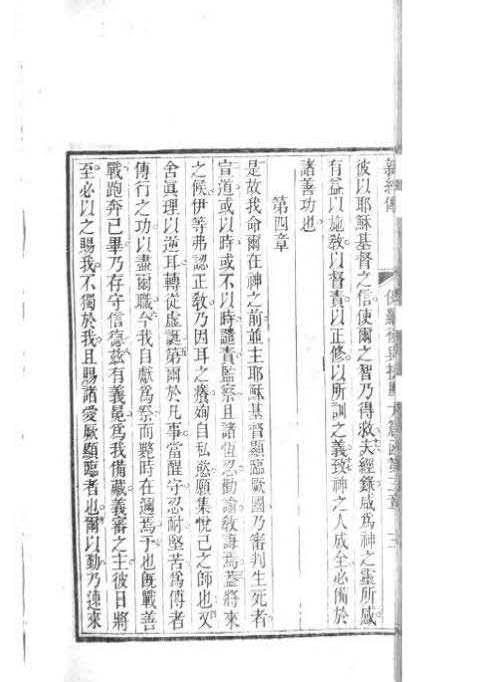 彼以耶穌基督之信使爾之智乃得救夫經錄咸為神之靈所感
有益以施教以督責以正修以所訓之義致神之人成全必備於
諸善功也
第四章
是故我命爾在神之前並主耶穌基督顯臨厥國乃審判生死者
宣道或以時或不以時譴責監察且諸恆忍勸諭教誨焉蓋將來
之候伊等弗認正教乃因耳之癢殉自私慾願集悅己之師也又
舍眞理以逆耳轉從虛誕第爾於凡事當醒守忍耐堅苦為傳者
傳行之功以盡爾職今我自獻為祭而斃時在邇焉予也既戰善
戰跑奔已畢乃存守信德茲有義冕為我備藏義審之主彼日將
至必以之賜我不獨於我且賜諸愛厥顯臨者也爾以勤乃速來